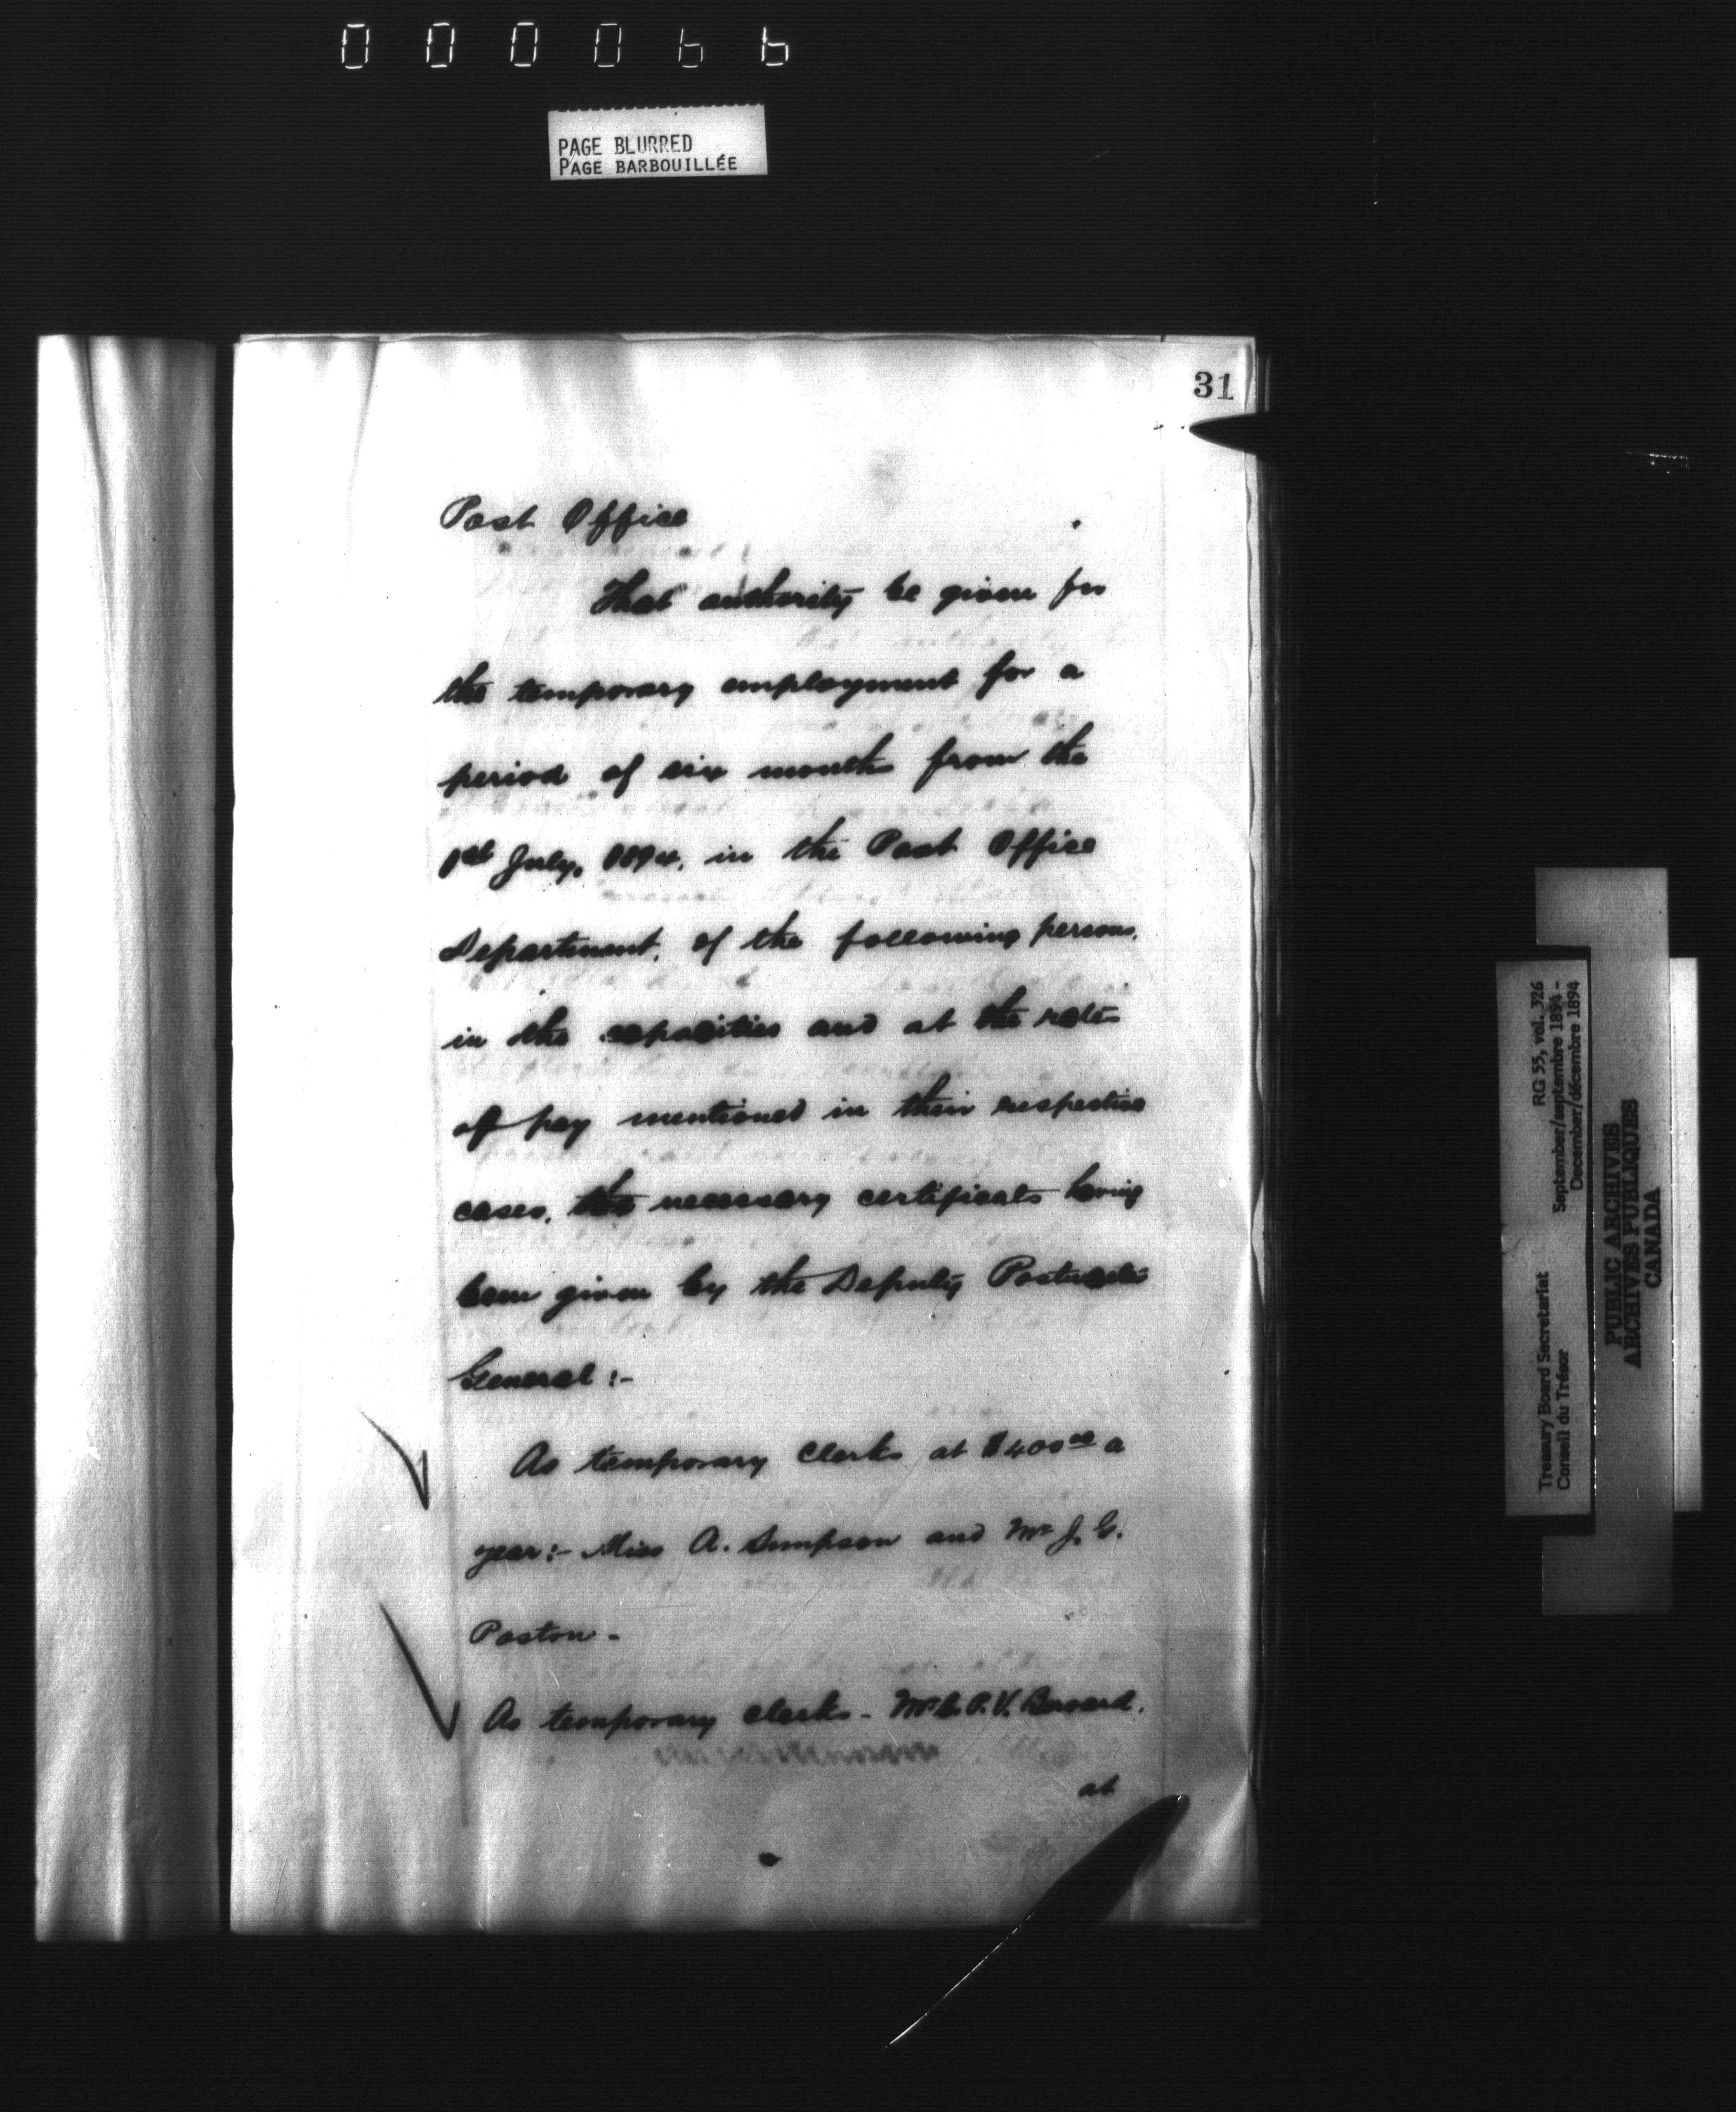 000066
PAGE BLURRED
PAGE BARBOUILLÉE
31
Post Office
That authority be given for
the temporary employment for a
period of six months from the
1st July, 1894, in the Post Office
Department, of the following persons,
in the capacities and at the rates
of pay mentioned in their respective
cases, the necessary certificates having
been given by the Deputy Postmaster
General :-
As temporary clerks at $400 00 a
year :- Miss A. Simpson and Mr J. G.
Poston -
As temporary clerks - Mr P. V.
at
Treasury Board Secretariat RG 55, vol. 326
Conseil du Trésor September/septembre 1894 -
December/décembre 1894
PUBLIC ARCHIVES
ARCHIVES PUBLIQUES
CANADA